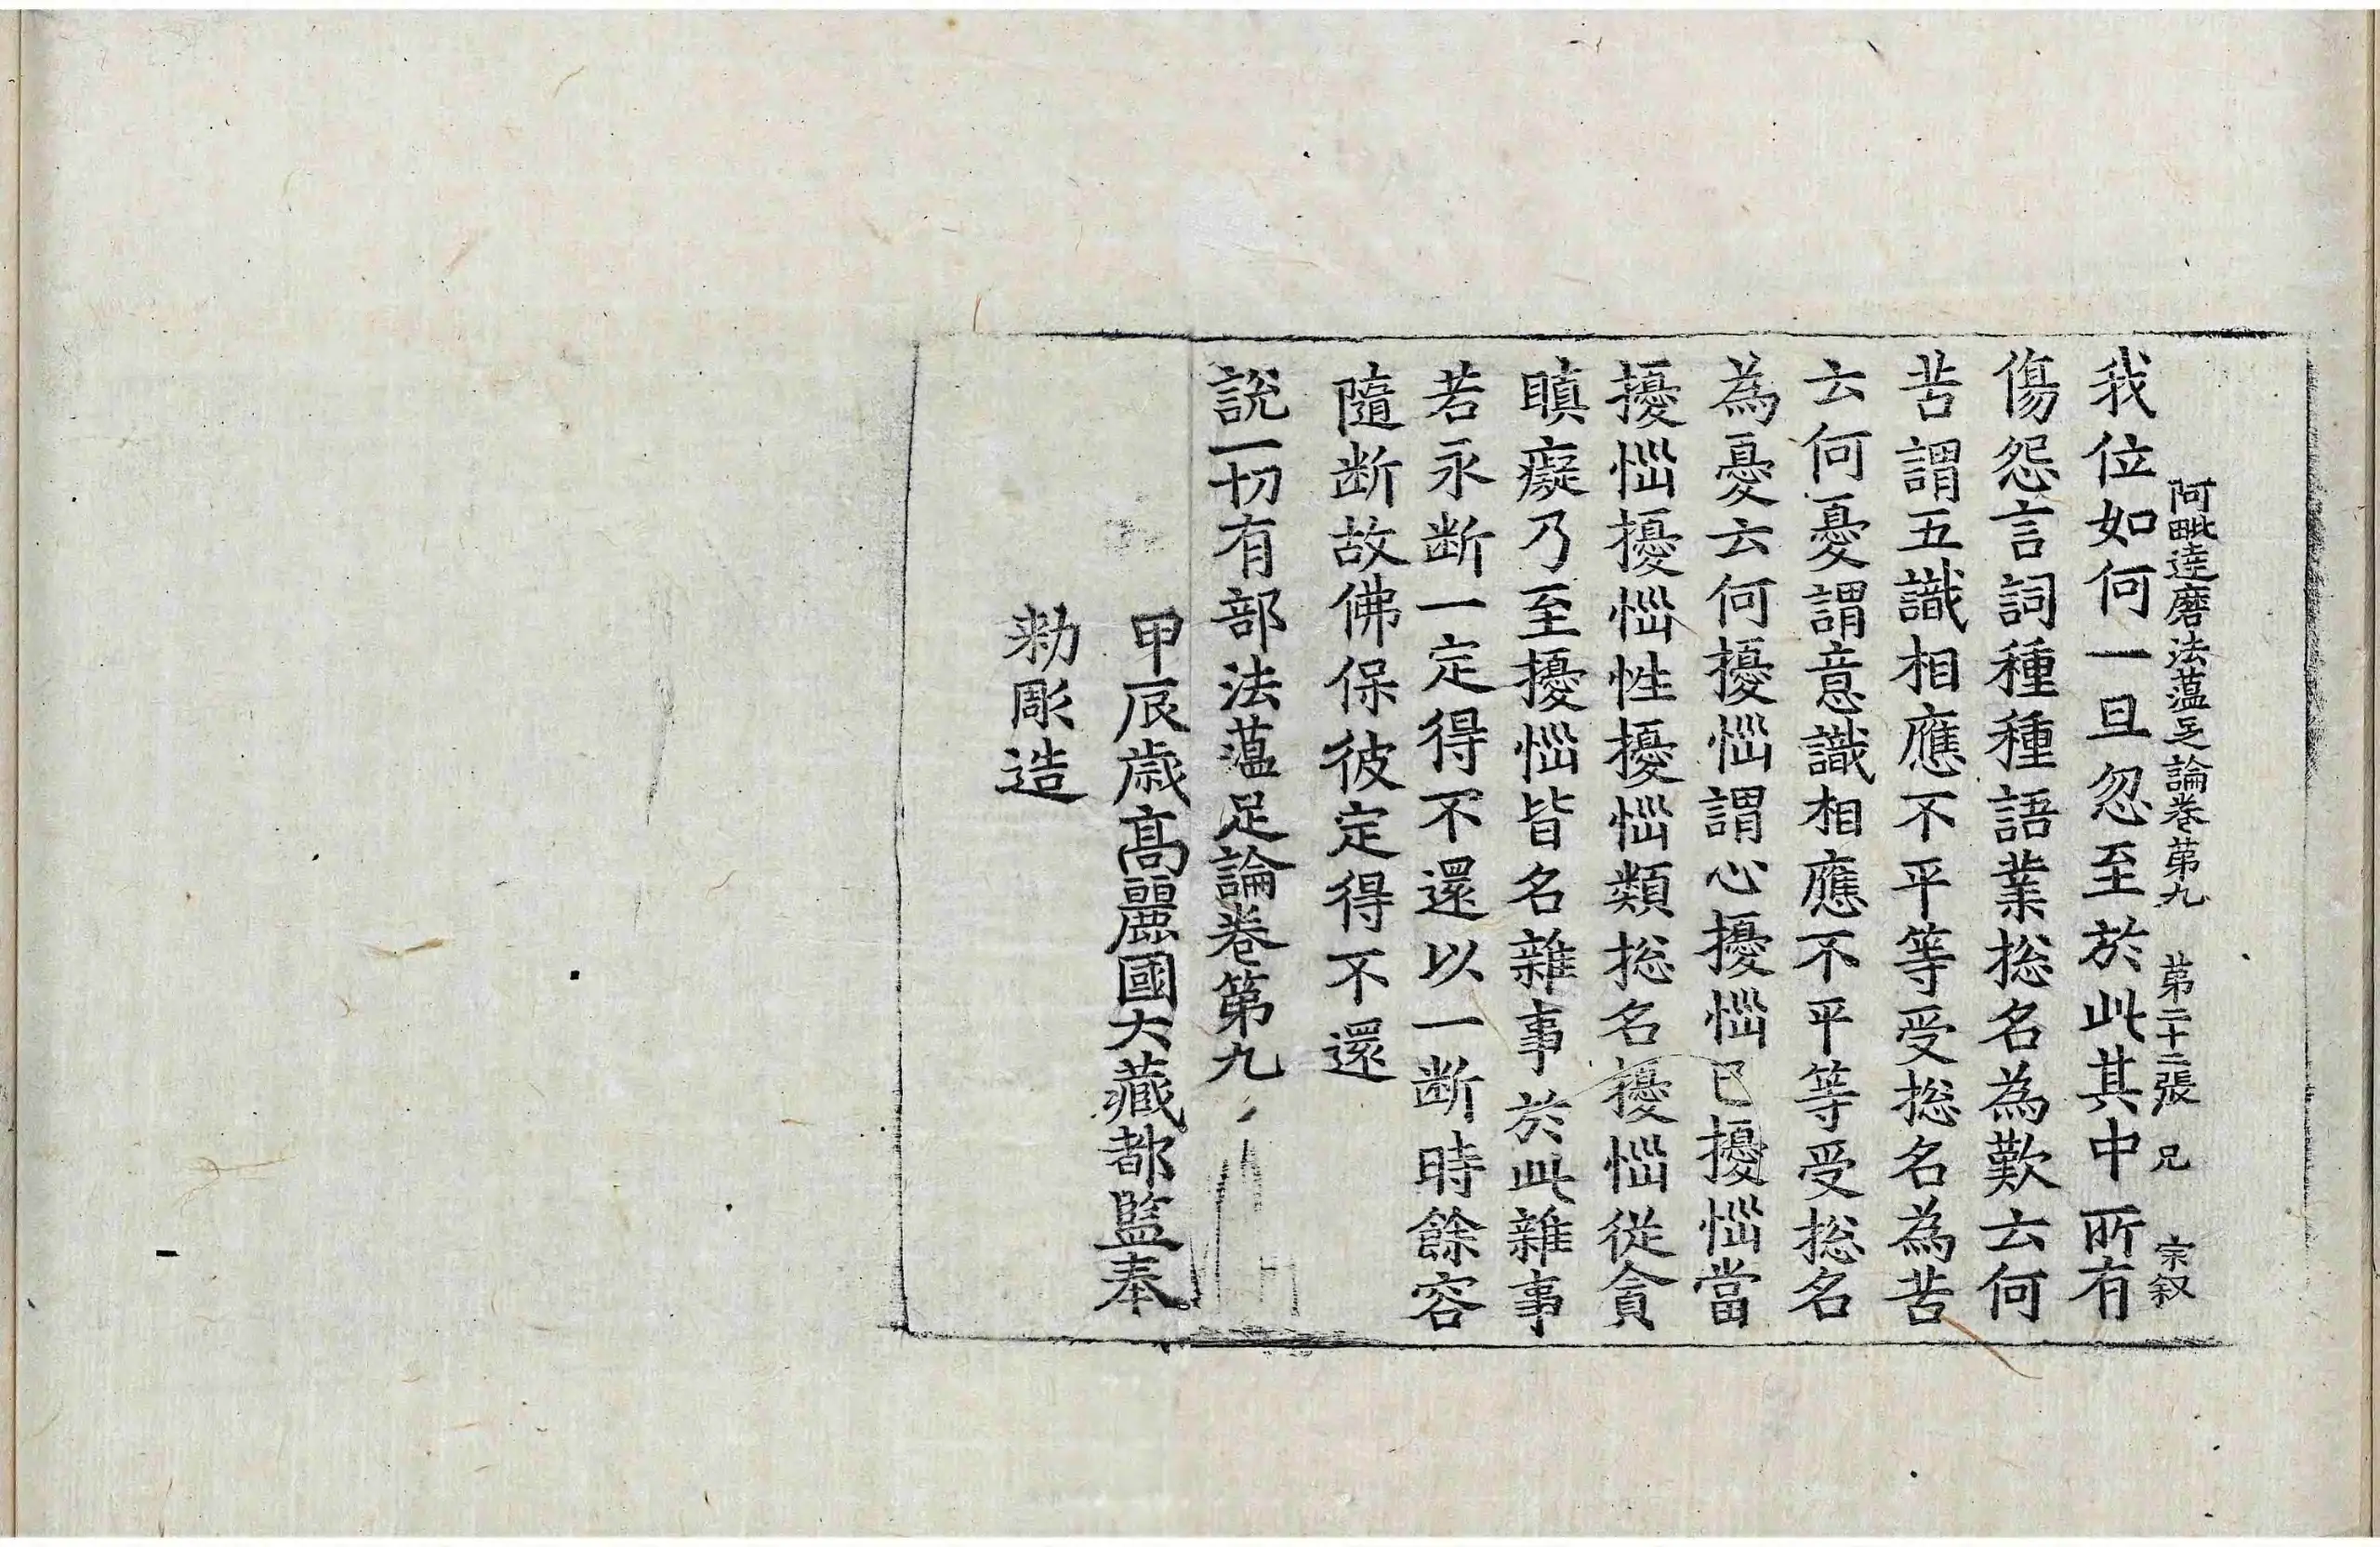 阿毗達磨法蘊足論卷第九 第二十二張 兄 宗叙
我位如何一旦忽至於此其中所有
傷怨言詞種種語業捴名為歎云何
苦謂五識相應不平等受捴名為苦
云何憂謂意識相應不平等受捴名
為憂云何擾惱謂心擾惱已擾惱當
擾惱擾惱性擾惱類捴名擾惱從貪
瞋癡乃至擾惱皆名雜事於此雜事
若永断一定得不還以一断時餘容
隨断故佛保彼定得不還
說一切有部法蘊足論卷第九
甲辰歲高麗國大藏都監奉
勑彫造